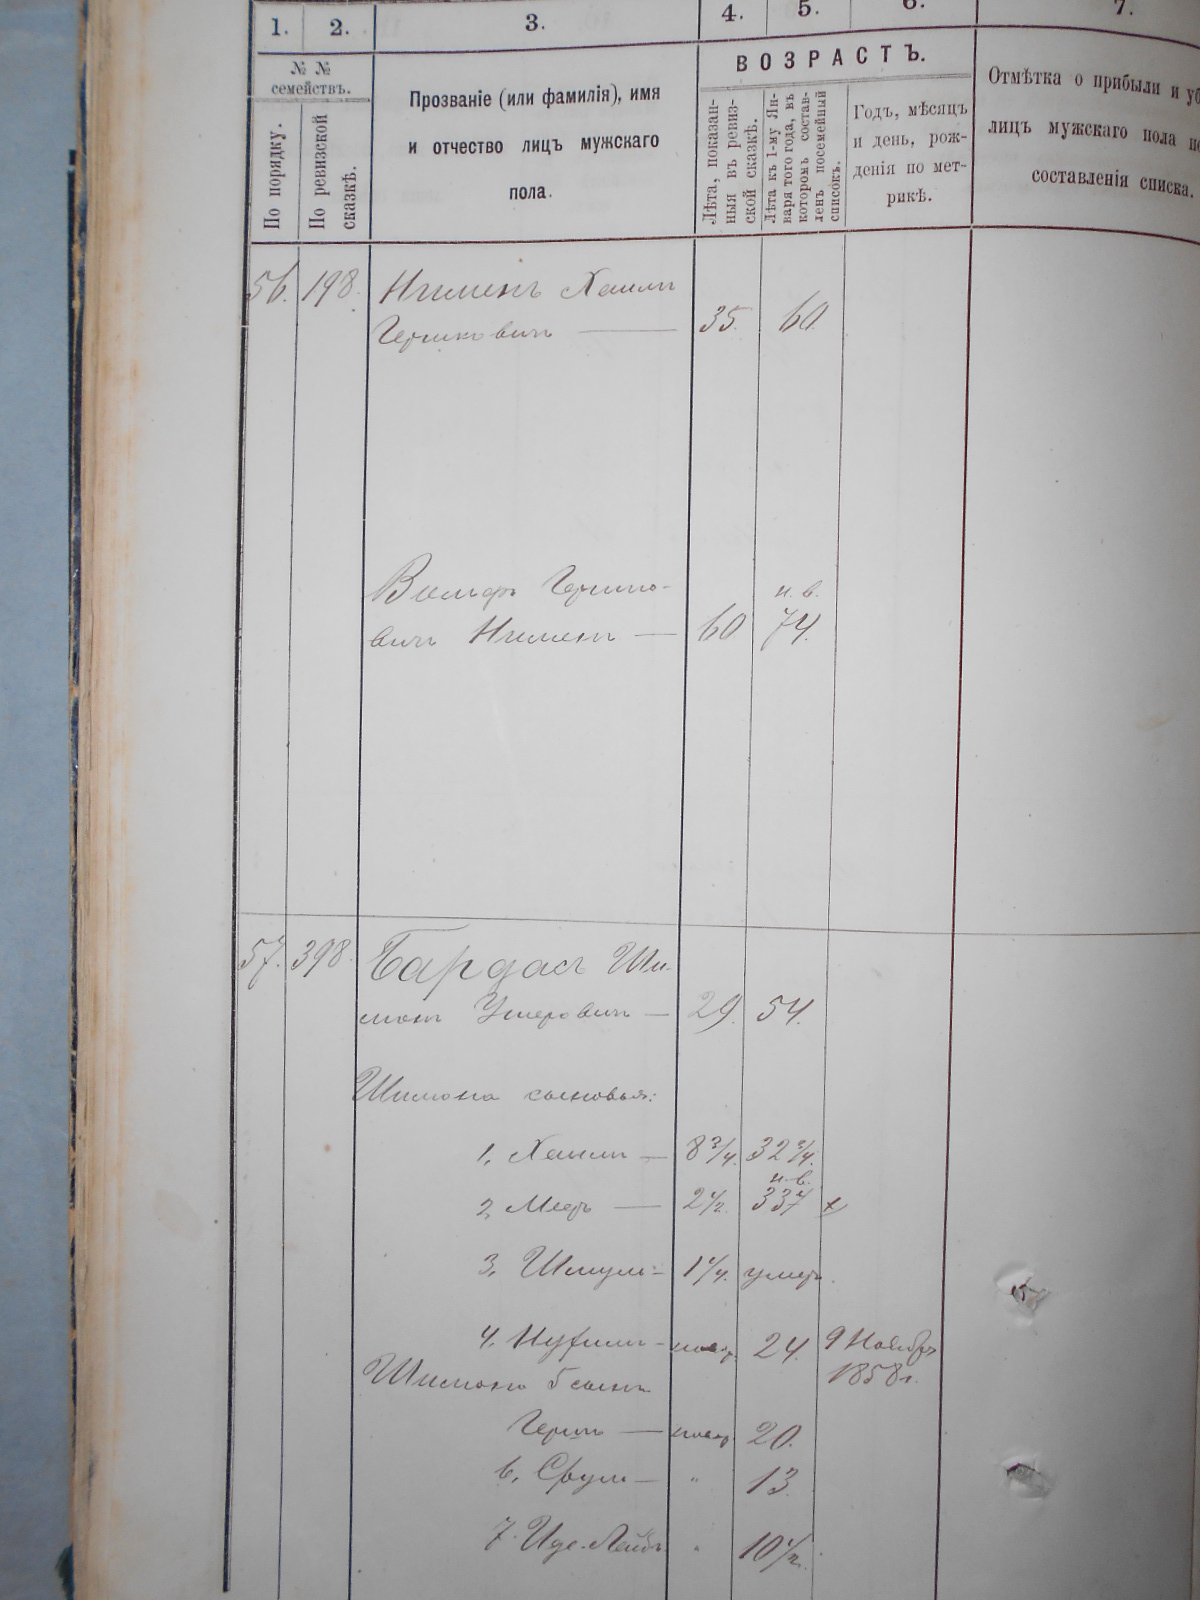 1. 2. 3. 4. 5. 6. 7.
№ № семействъ.
По порядку.
По ревизской сказкѣ.
Прозваніе (или фамилія), имя
и отчество лицъ мужскаго
пола.
ВОЗРАСТЪ.
Лѣта, показан-
ныя въ ревиз-
ской сказкѣ.
Лѣта къ 1-му Ян-
варя того года, въ
которомъ состав-
ленъ посемейный
списокъ.
Годъ, мѣсяцъ
и день, рож-
денія по мет-
рикѣ.
Отмѣтка о прибыли и уб
лицъ мужскаго пола п
составленія списка.
56. 198.
Гершковичъ — 35. 60.
Вольфъ Гершко- н. в.
вичъ — 60 74.
57. 398. Бардасъ Ши-
монъ Ушеровичъ — 29. 54.
Шимона сыновья:
1. Хаимъ — 8 3/4. 32 3/4.
н. в.
2. Мееръ — 2 1/2.
3. Шмуль — 1 1/4. умеръ.
4. 24. 9 Ноябр
Шимона 5 сынъ 1858 г.
Гершъ — 20.
6. Сруль — " 13.
7. Иде-Лейбъ " 10 1/2.